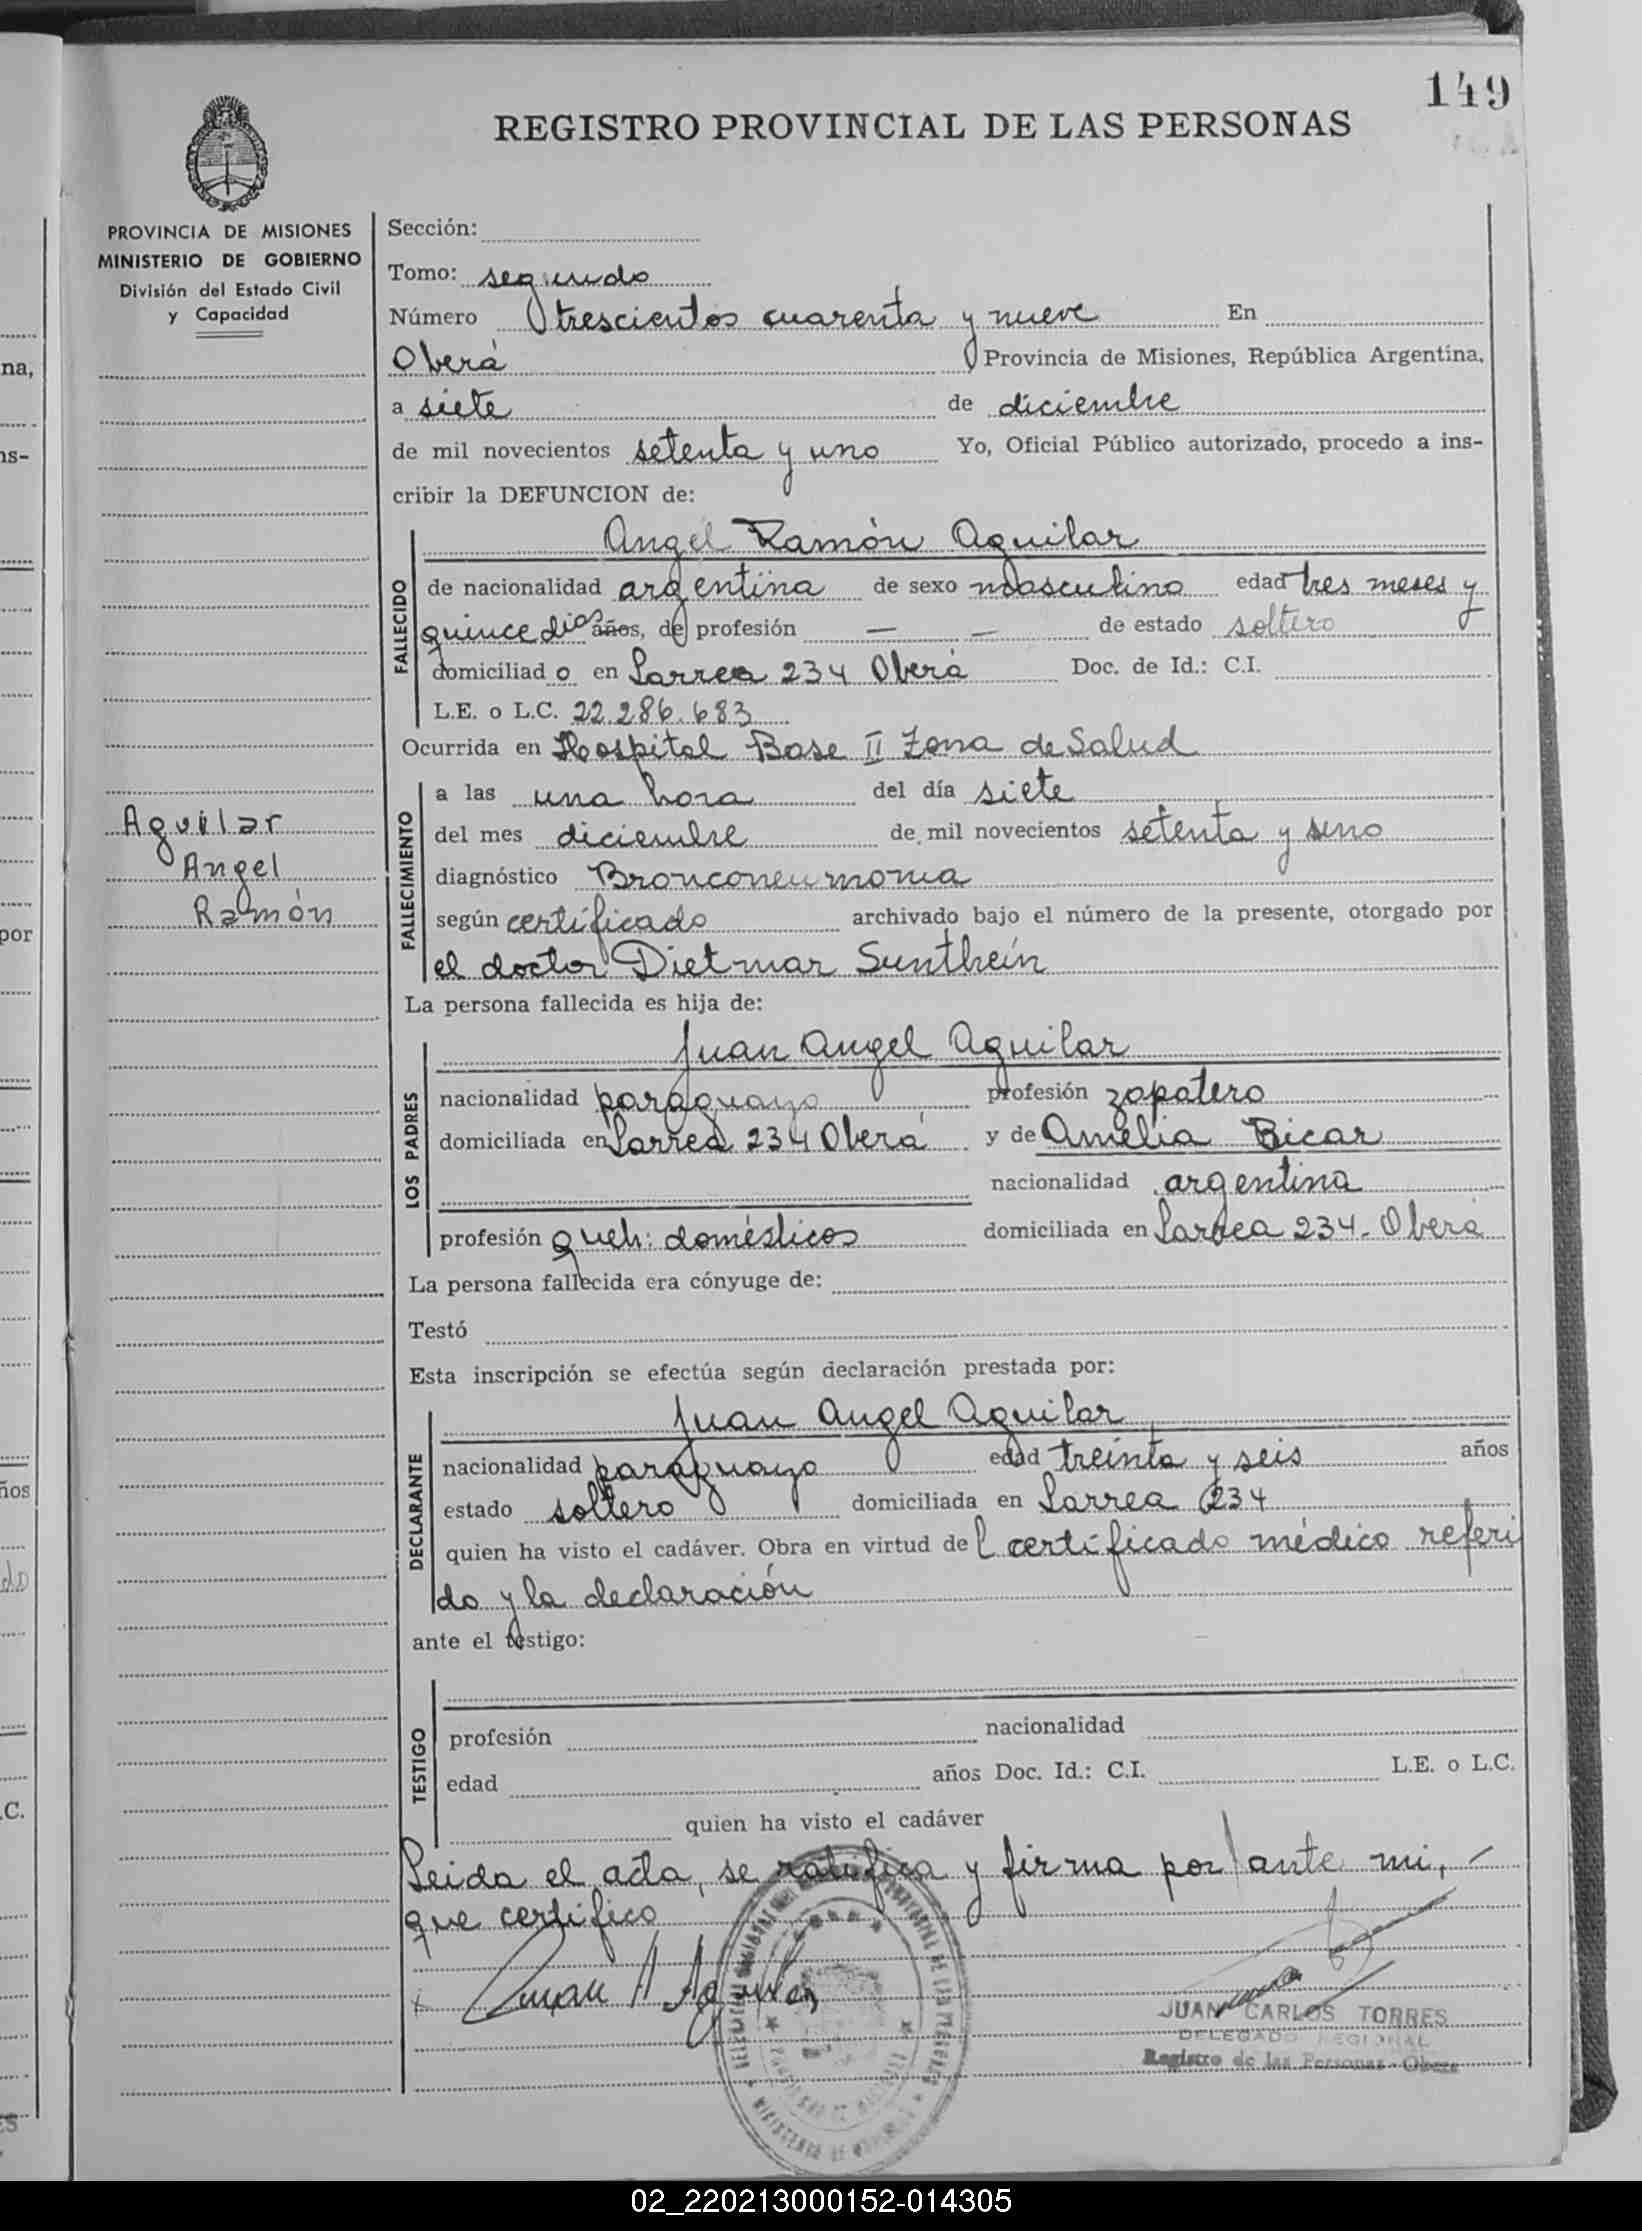 149
REGISTRO PROVINCIAL DE LAS PERSONAS
PROVINCIA DE MISIONES
MINISTERIO DE GOBIERNO
División del Estado Civil
y Capacidad
Sección:
Tomo: segundo
Número trescientos cuarenta y nueve En
Oberá Provincia de Misiones, República Argentina,
a siete de diciembre
de mil novecientos setenta y uno Yo, Oficial Público autorizado, procedo a ins-
cribir la DEFUNCION de:
FALLECIDO
Angel Ramón Aguilar
de nacionalidad argentina de sexo masculino edad tres meses y
quince dias años, de profesión — — de estado soltero
domiciliado en Larrea 234 Oberá Doc. de Id.: C.I.
L.E. o L.C. 22.286.683
Ocurrida en Hospital Base II Zona de Salud
FALLECIMIENTO
a las una hora del día siete
del mes diciembre de mil novecientos setenta y uno
diagnóstico Bronconeumonia
según certificado archivado bajo el número de la presente, otorgado por
el doctor Dietmar Sunthein
Aguilar
Angel
Ramón
La persona fallecida es hija de:
LOS PADRES
Juan Angel Aguilar
nacionalidad paraguayo profesión zapatero
domiciliada en Larrea 234 Oberá y de Amelia Bicar
nacionalidad argentina
profesión queh: domésticos domiciliada en Larrea 234 - Oberá
La persona fallecida era cónyuge de:
Testó
Esta inscripción se efectúa según declaración prestada por:
DECLARANTE
Juan Angel Aguilar
nacionalidad paraguayo edad treinta y seis años
estado soltero domiciliada en Larrea 234
quien ha visto el cadáver. Obra en virtud del certificado médico referi
do y la declaración
ante el testigo:
TESTIGO
profesión nacionalidad
edad años Doc. Id.: C.I. L.E. o L.C.
quien ha visto el cadáver
Leida el acta, se ratifica y firma por ante mi, -
que certifico
Juan A Aguilar
JUAN CARLOS TORRES
DELEGADO REGIONAL
Registro de las Personas - Obera
02_220213000152-014305